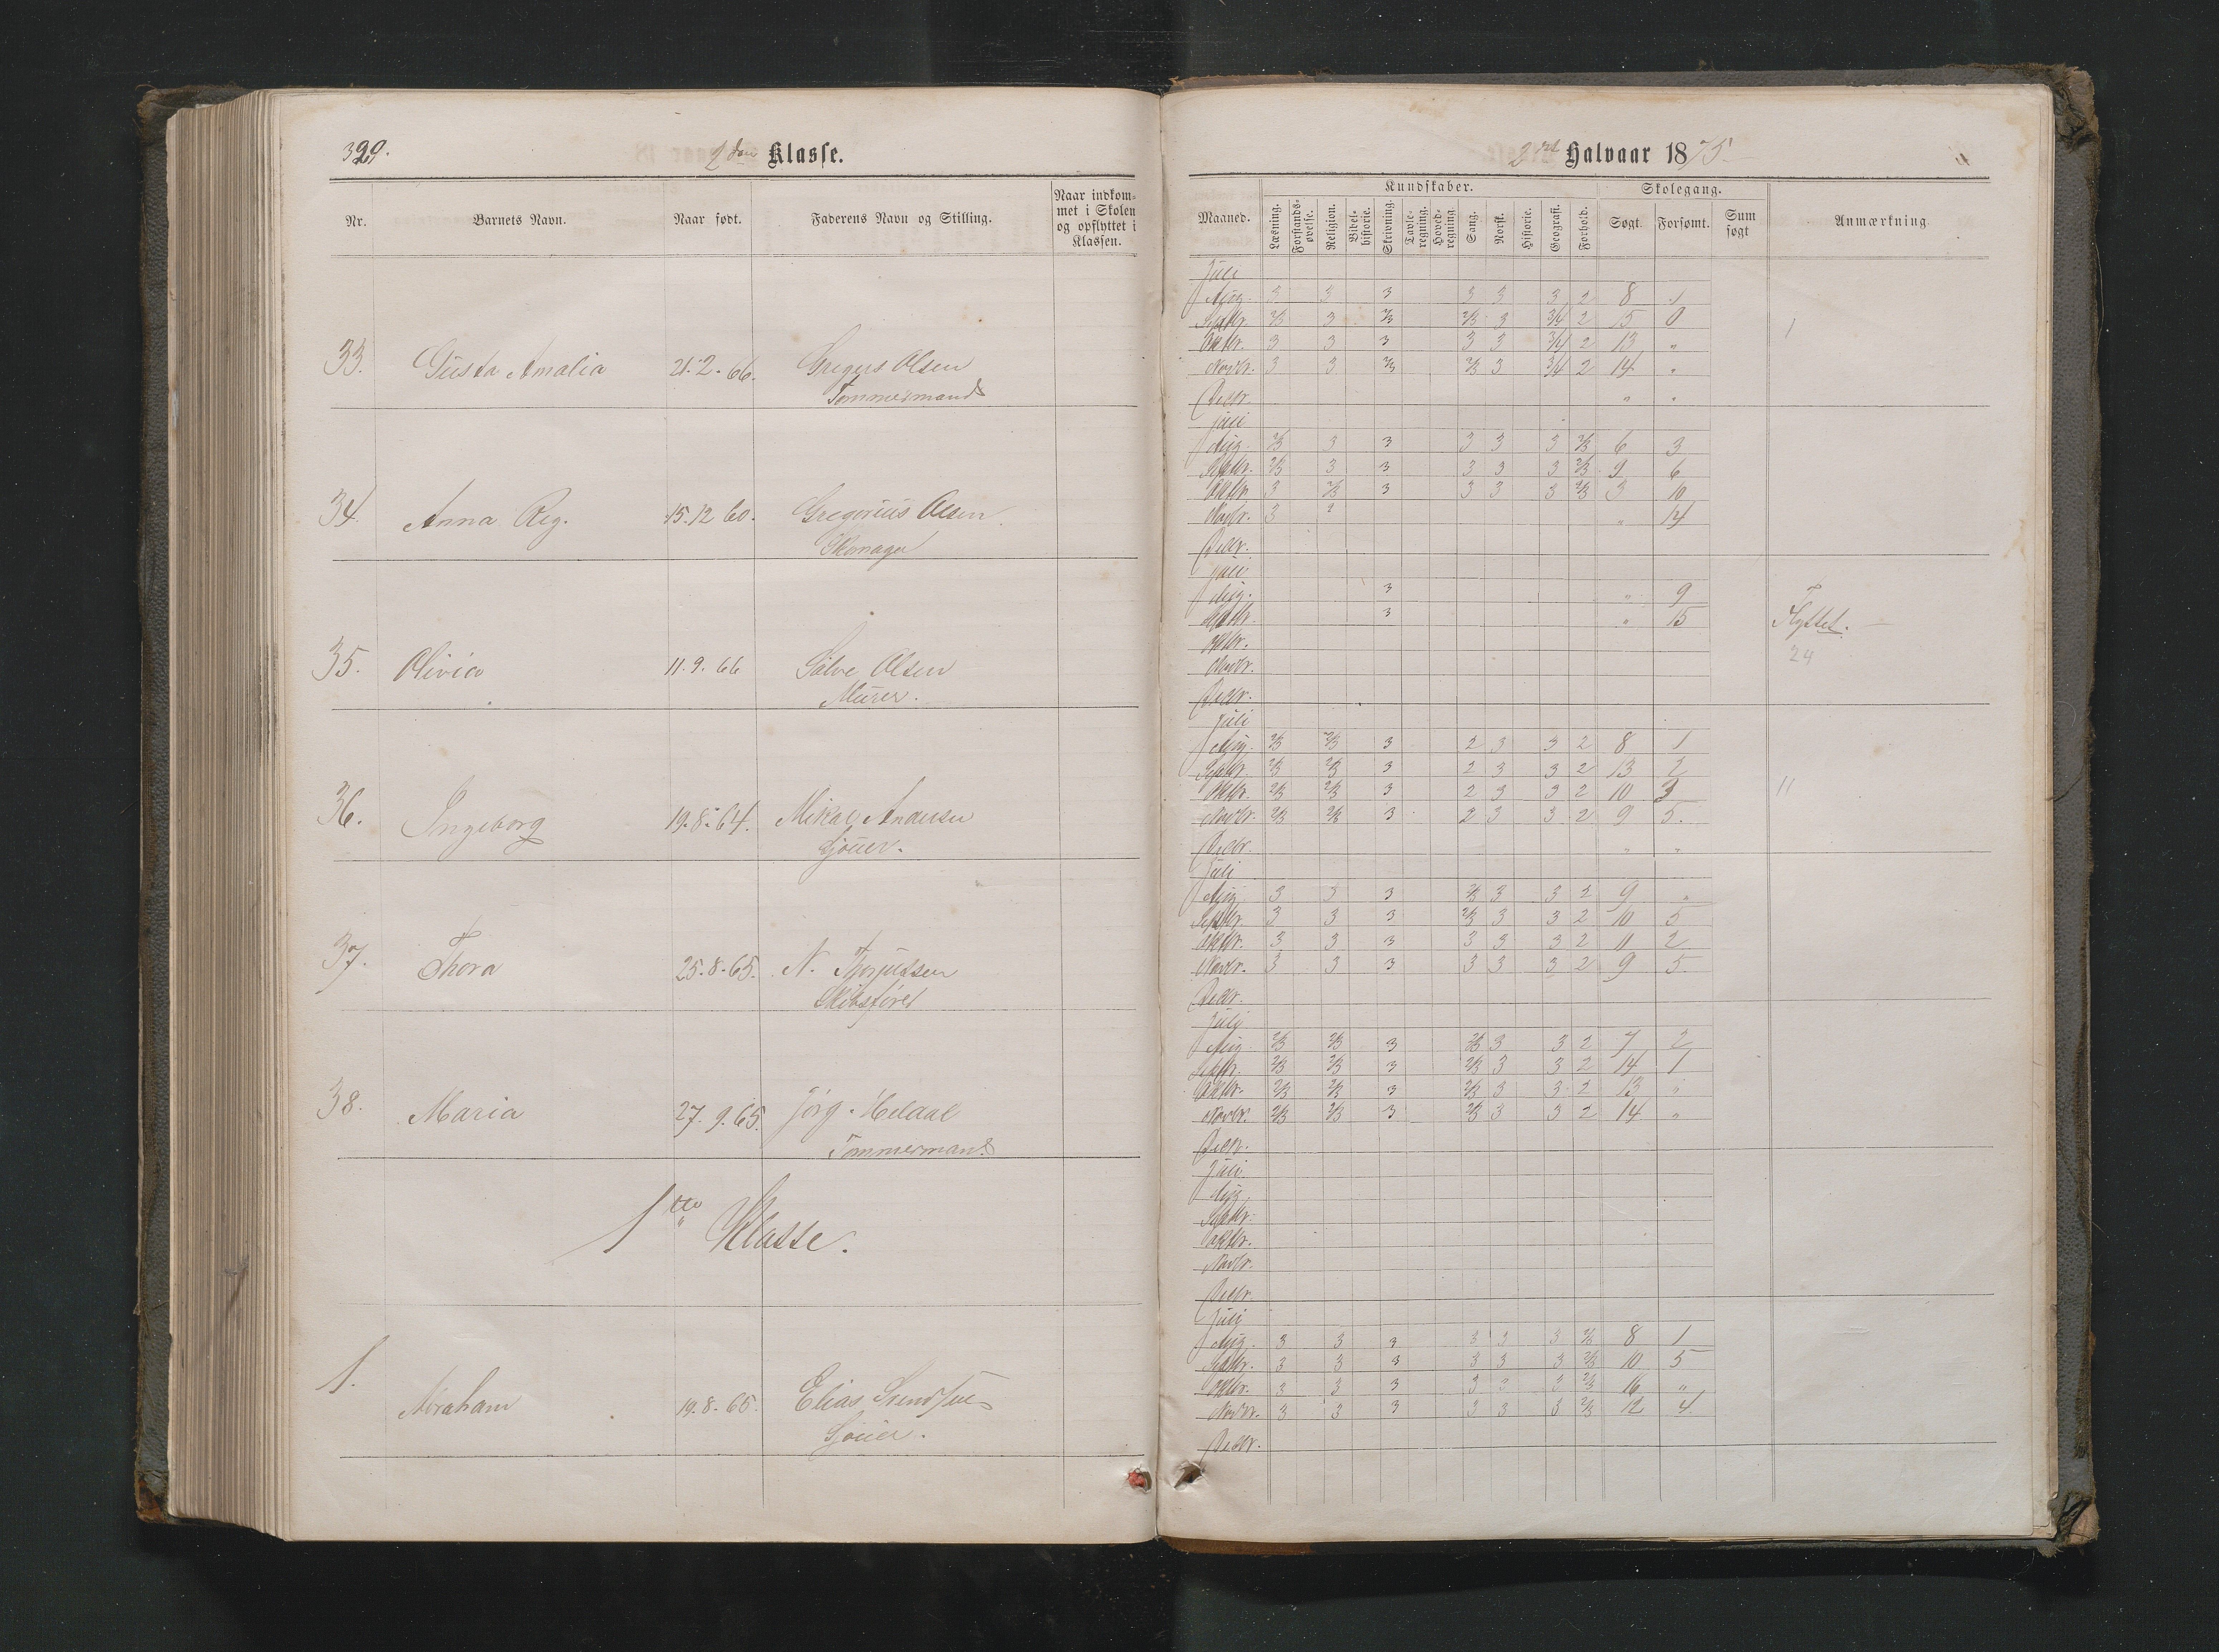 329.
2den Klasse.
Nr.
Barnets Navn.
Naar født.
Faderens Navn og Stilling.
Naar indkom=
met i Skolen
og opflyttet i
Klassen.
33. Gusta Amalia 21.2.66. Gregus Olsen
Tømmermand
34. Anna Reg. 15.12 60. Gregorius Olsen
Skomager
35. Olivia 11.9.66 Salve Olsen
Murer.
36. Ingeborg 19.8.64. Mikal Andersen
Sjouer.
37. Thora 25.8.65. N. Torjussen
Skibsfører
38. Maria 27.9.65. Jørg. Heldal
Tømmermand
1ste Klasse.
1. Abraham 19.8.65. Elias Svendsen
Sjouer.
2det Halvaar 1875.
Kundskaber. Skolegang.
Maaned. Læsning. Forstands=øvelse. Religion. Bibel=historie. Skrivning. Tavle=regning. Hoved=regning Sang. Norsk. Historie. Geografi. Forhold. Søgt. Forsømt. Sum søgt Anmærkning
Juli
Aug. 3 3 3 3 3 3 2 8 1
Septbr. 2/3 3 2/3 2/3 3 3/4 2 15 0
Oktbr. 3 3 3 3 3 3/4 2 13 "
Novbr. 3 3 2/3 2/3 3 3/4 2 14 "
Decbr. " "
Juli
Aug. 2/3 3 3 3 3 3 2/3 6 3
Septbr. 2/3 3 3 3 3 3 2/3 9 6
Oktbr. 3 2/3 3 3 3 3 2/3 3 10
Novbr. 3 " 14
Decbr.
Juli
Aug. 3 " 9
Septbr. 3 " 15 Flyttet.
Oktbr. 24
Novbr.
Decbr.
Juli
Aug. 2/3 2/3 3 2 3 3 2 8 1
Septbr. 2/3 2/3 3 2 3 3 2 13 2
Oktbr. 2/3 2/3 3 2 3 3 2 10 3 11
Novbr. 2/3 2/3 3 2 3 3 2 9 5.
Decbr. " "
Juli
Aug. 3 3 3 2/3 3 3 2 9 "
Septbr. 3 3 3 2/3 3 3 2 10 5
Oktbr. 3 3 3 3 3 3 2 11 2
Novbr. 3 3 3 3 3 3 2 9 5
Decbr.
Juli
Aug. 2/3 2/3 3 2/3 3 3 2 7 2
Septbr. 2/3 2/3 3 2/3 3 3 2 14 1
Oktbr. 2/3 2/3 3 2/3 3 3 2 13 "
Novbr. 2/3 2/3 3 2/3 3 3 2 14 "
Decbr.
Juli
Aug.
Septbr.
Oktbr.
Novbr.
Decbr.
Juli
Aug. 3 3 3 3 3 3 2/3 8 1
Septbr. 3 3 3 3 3 3 2/3 10 5
Oktbr. 3 3 3 3 3 3 2/3 16 "
Novbr. 3 3 3 3 3 3 2/3 12 4
Decbr.